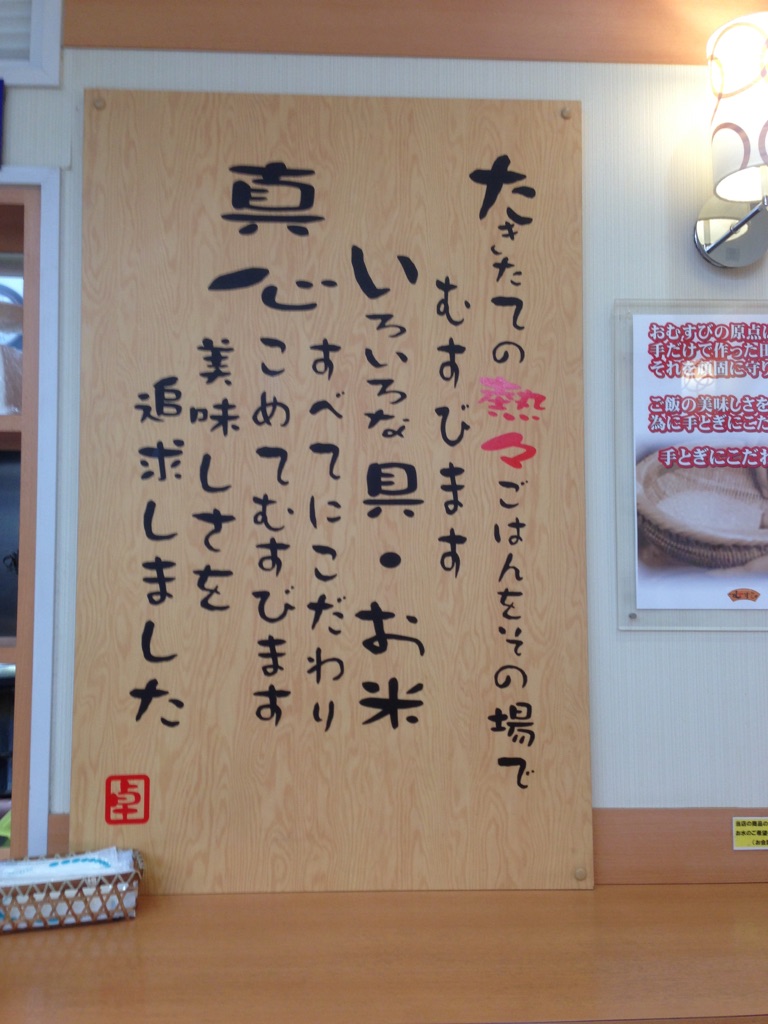 たきたての熱々ごはんをその場で
むすびます
いろいろな具・お米
すべてにこだわり
真心
こめてむすびます
美味しさを
追求しました
おむすびの原点
手だけで作った
それを頑固に守
ご飯の美味しさを
為に手とぎにこだ
手とぎにこだわ
当店の商品の
お水のご希望